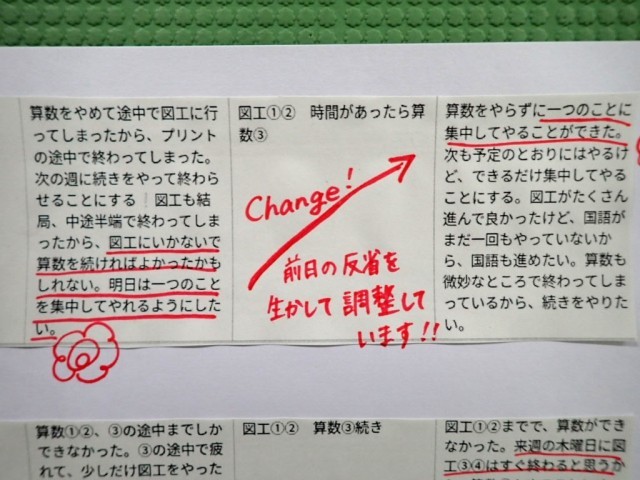 算数をやめて途中で図工に行
ってしまったから、プリント
の途中で終わってしまった。
次の週に続きをやって終わら
せることにする 図工も結
局、中途半端で終わってしま
ったから、図工にいかないで
算数を続ければよかったかも
しれない。明日は一つのこと
を集中してやれるようにした
い。
図工①② 時間があったら算
数③
Change!
前日の反省を
生かして調整して
います!!
算数をやらずに一つのことに
集中してやることができた。
次も予定のとおりにはやるけ
ど、できるだけ集中してやる
ことにする。図工がたくさん
進んで良かったけど、国語が
まだ一回もやっていないか
ら、国語も進めたい。算数も
微妙なところで終わってしま
っているから、続きをやりた
い。
算数①②、③の途中までしか
できなかった。③の途中で疲
れて、少しだけ図工をやった
図工①② 算数③続き
図工①②までで、算数ができ
なかった。来週の木曜日に図
工③④はすぐ終わると思うか